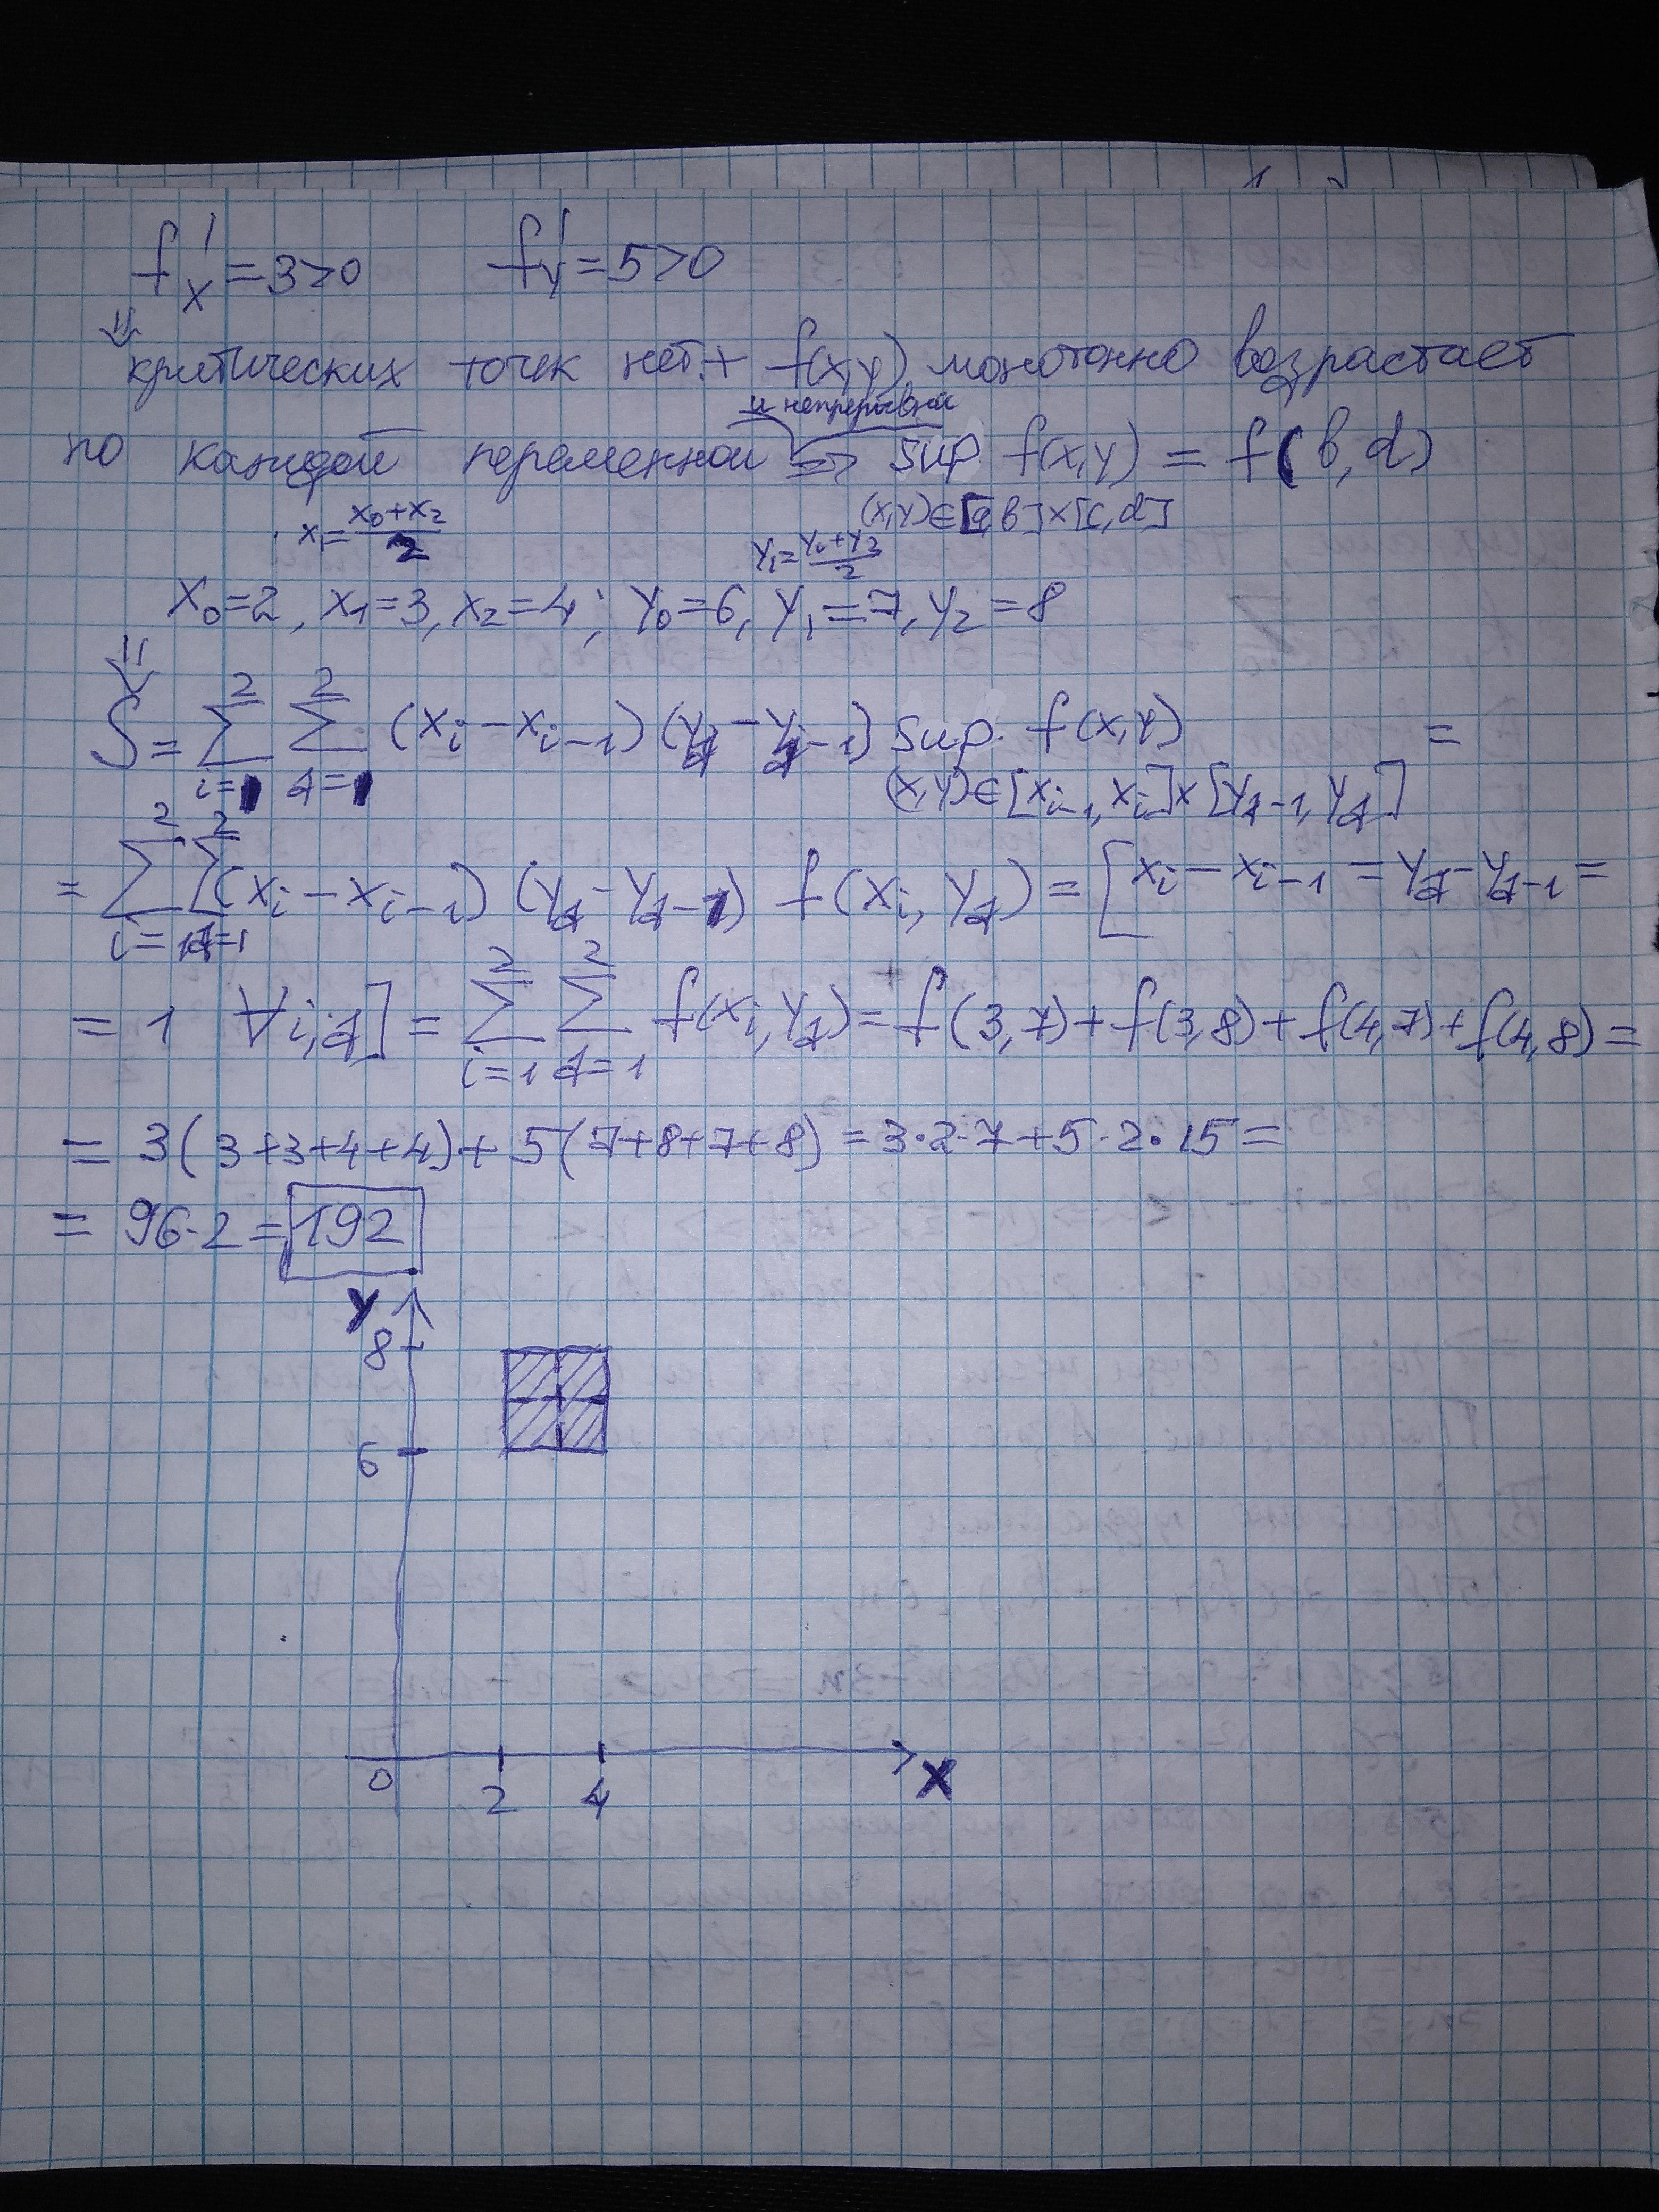 f'x = 3 > 0 f'y = 5 > 0
⇓
критических точек нет. + f(x,y) монотонно возрастает
и непрерывна
по каждой переменной ⇒ sup f(x,y) = f(b,d)
(x,y)∈[a,b]×[c,d]
x₁ = (x₀+x₂)/2 y₁ = (y₀+y₂)/2
x₀=2, x₁=3, x₂=4; y₀=6, y₁=7, y₂=8
⇓
S = ∑_{i=1}^{2} ∑_{j=1}^{2} (x_i − x_{i−1})(y_j − y_{j−1}) sup f(x,y) =
(x,y)∈[x_{i−1}, x_i]×[y_{j−1}, y_j]
= ∑_{i=1}^{2} ∑_{j=1}^{2} (x_i − x_{i−1})(y_j − y_{j−1}) f(x_i, y_j) = [x_i − x_{i−1} = y_j − y_{j−1} =
= 1 ∀i,j] = ∑_{i=1}^{2} ∑_{j=1}^{2} f(x_i, y_j) = f(3,7) + f(3,8) + f(4,7) + f(4,8) =
= 3(3+3+4+4) + 5(7+8+7+8) = 3·2·7 + 5·2·15 =
= 96·2 = 192
y
8
6
0 2 4 x